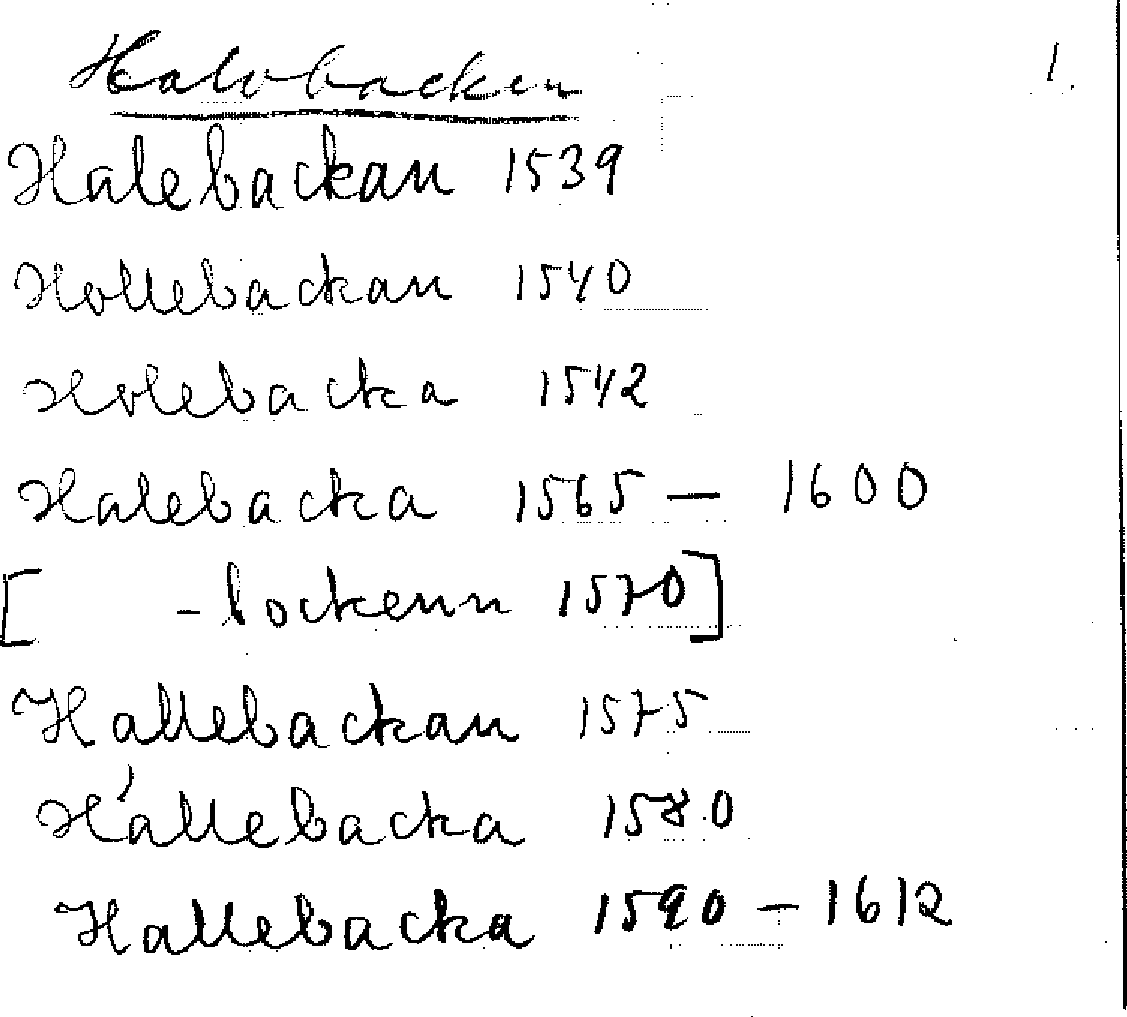 Halvbacken
1.
Halebackan 1539
Hollebackan 1540
Holebacka 1542
Halebacka 1565 — 1600
[ -backenn 1570]
Hallebackan 1575
Hállebacka 1580
Hallebacka 1590 – 1612